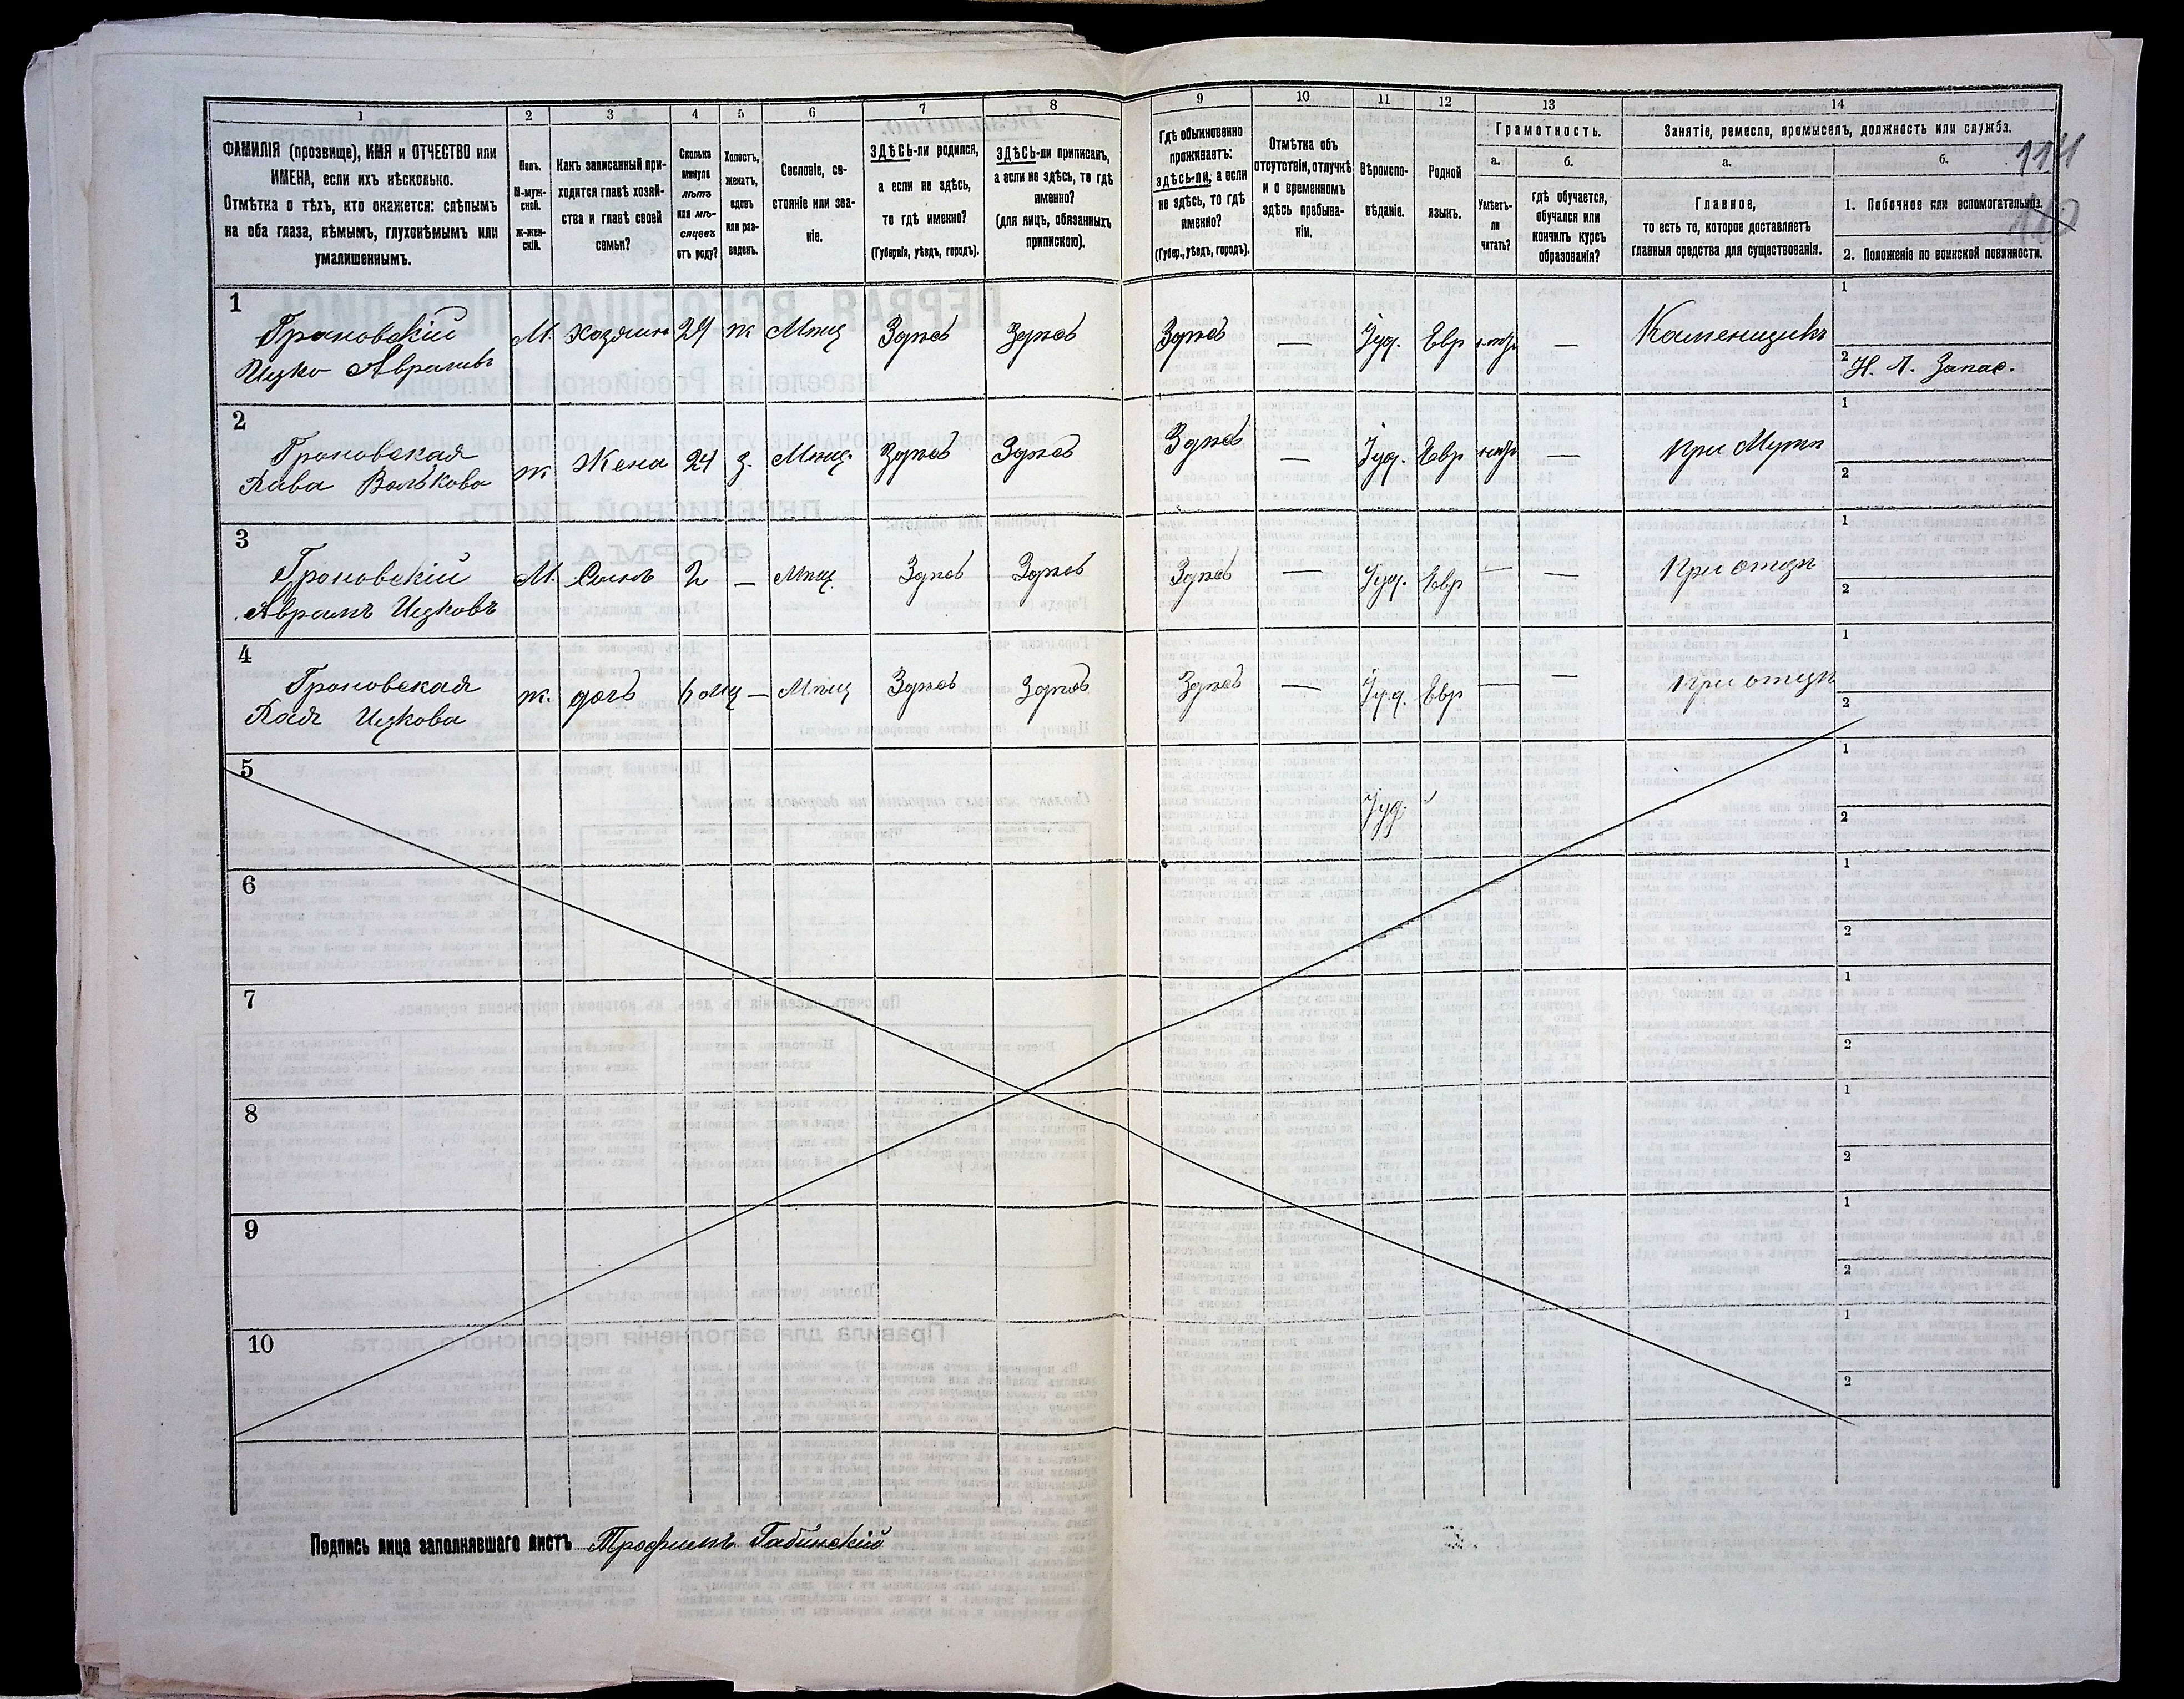 1
2
3
4
5
6
7
8
9
10
11
12
13
14
ФАМИЛІЯ (прозвище), ИМЯ и ОТЧЕСТВО или
ИМЕНА, если ихъ нѣсколько.
Отмѣтка о тѣхъ, кто окажется: слѣпымъ
на оба глаза, нѣмымъ, глухонѣмымъ или
умалишеннымъ.
Полъ.
М-муж-
ской.
ж-жен-
скій.
Какъ записанный при-
ходится главѣ хозяй-
ства и главѣ своей
семьи?
Сколько
минуло
лѣтъ
или мѣ-
сяцевъ
отъ роду?
Холостъ,
женатъ,
вдовъ
или раз-
веденъ.
Сословіе, со-
стояніе или зва-
ніе.
ЗДѢСЬ-ли родился,
а если не здѣсь,
то гдѣ именно?
(Губернія, уѣздъ, городъ).
ЗДѢСЬ-ли приписанъ,
а если не здѣсь, то гдѣ
именно?
(для лицъ, обязанныхъ
припискою).
Гдѣ обыкновенно
проживаетъ:
здѣсь-ли, а если
не здѣсь, то гдѣ
именно?
(Губер., уѣздъ, городъ).
Отмѣтка объ
отсутствіи, отлучкѣ
и о временномъ
здѣсь пребыва-
ніи.
Вѣроиспо-
вѣданіе.
Родной
языкъ.
Грамотность.
а.
б.
Умѣетъ-
ли
читать?
гдѣ обучается,
обучался или
кончилъ курсъ
образованія?
Занятіе, ремесло, промыселъ, должность или служба.
а.
б.
Главное,
то есть то, которое доставляетъ
главныя средства для существованія.
1. Побочное или вспомогательное.
2. Положеніе по воинской повинности.
114
1
Гроновскій
Ицко Аврамивъ
М. Хозяинъ 24 ж Мѣщ Здѣсь Здѣсь Здѣсь — Іуд. Евр — Каменщикъ
1
2 Н. Л. Запас.
2
Гроновская
Хава Волькова
ж Жена 24 з. Мѣщ. Здѣсь Здѣсь Здѣсь — Іуд. Евр — при Мужѣ
1
2
3
Гроновскій
Аврамъ Ицковъ
М. Сынъ 2 — Мѣщ. Здѣсь Здѣсь Здѣсь — Іуд. Евр — — при отцѣ
1
2
4
Гроновская
Ицкова
ж. дочь 6 мц — Мѣщ Здѣсь Здѣсь Здѣсь — Іуд. Евр — — при отцѣ
1
2
5
Іуд.
1
2
6
1
2
7
1
2
8
1
2
9
1
2
10
1
2
Подпись лица заполнявшаго листъ Трофимъ Габинскій